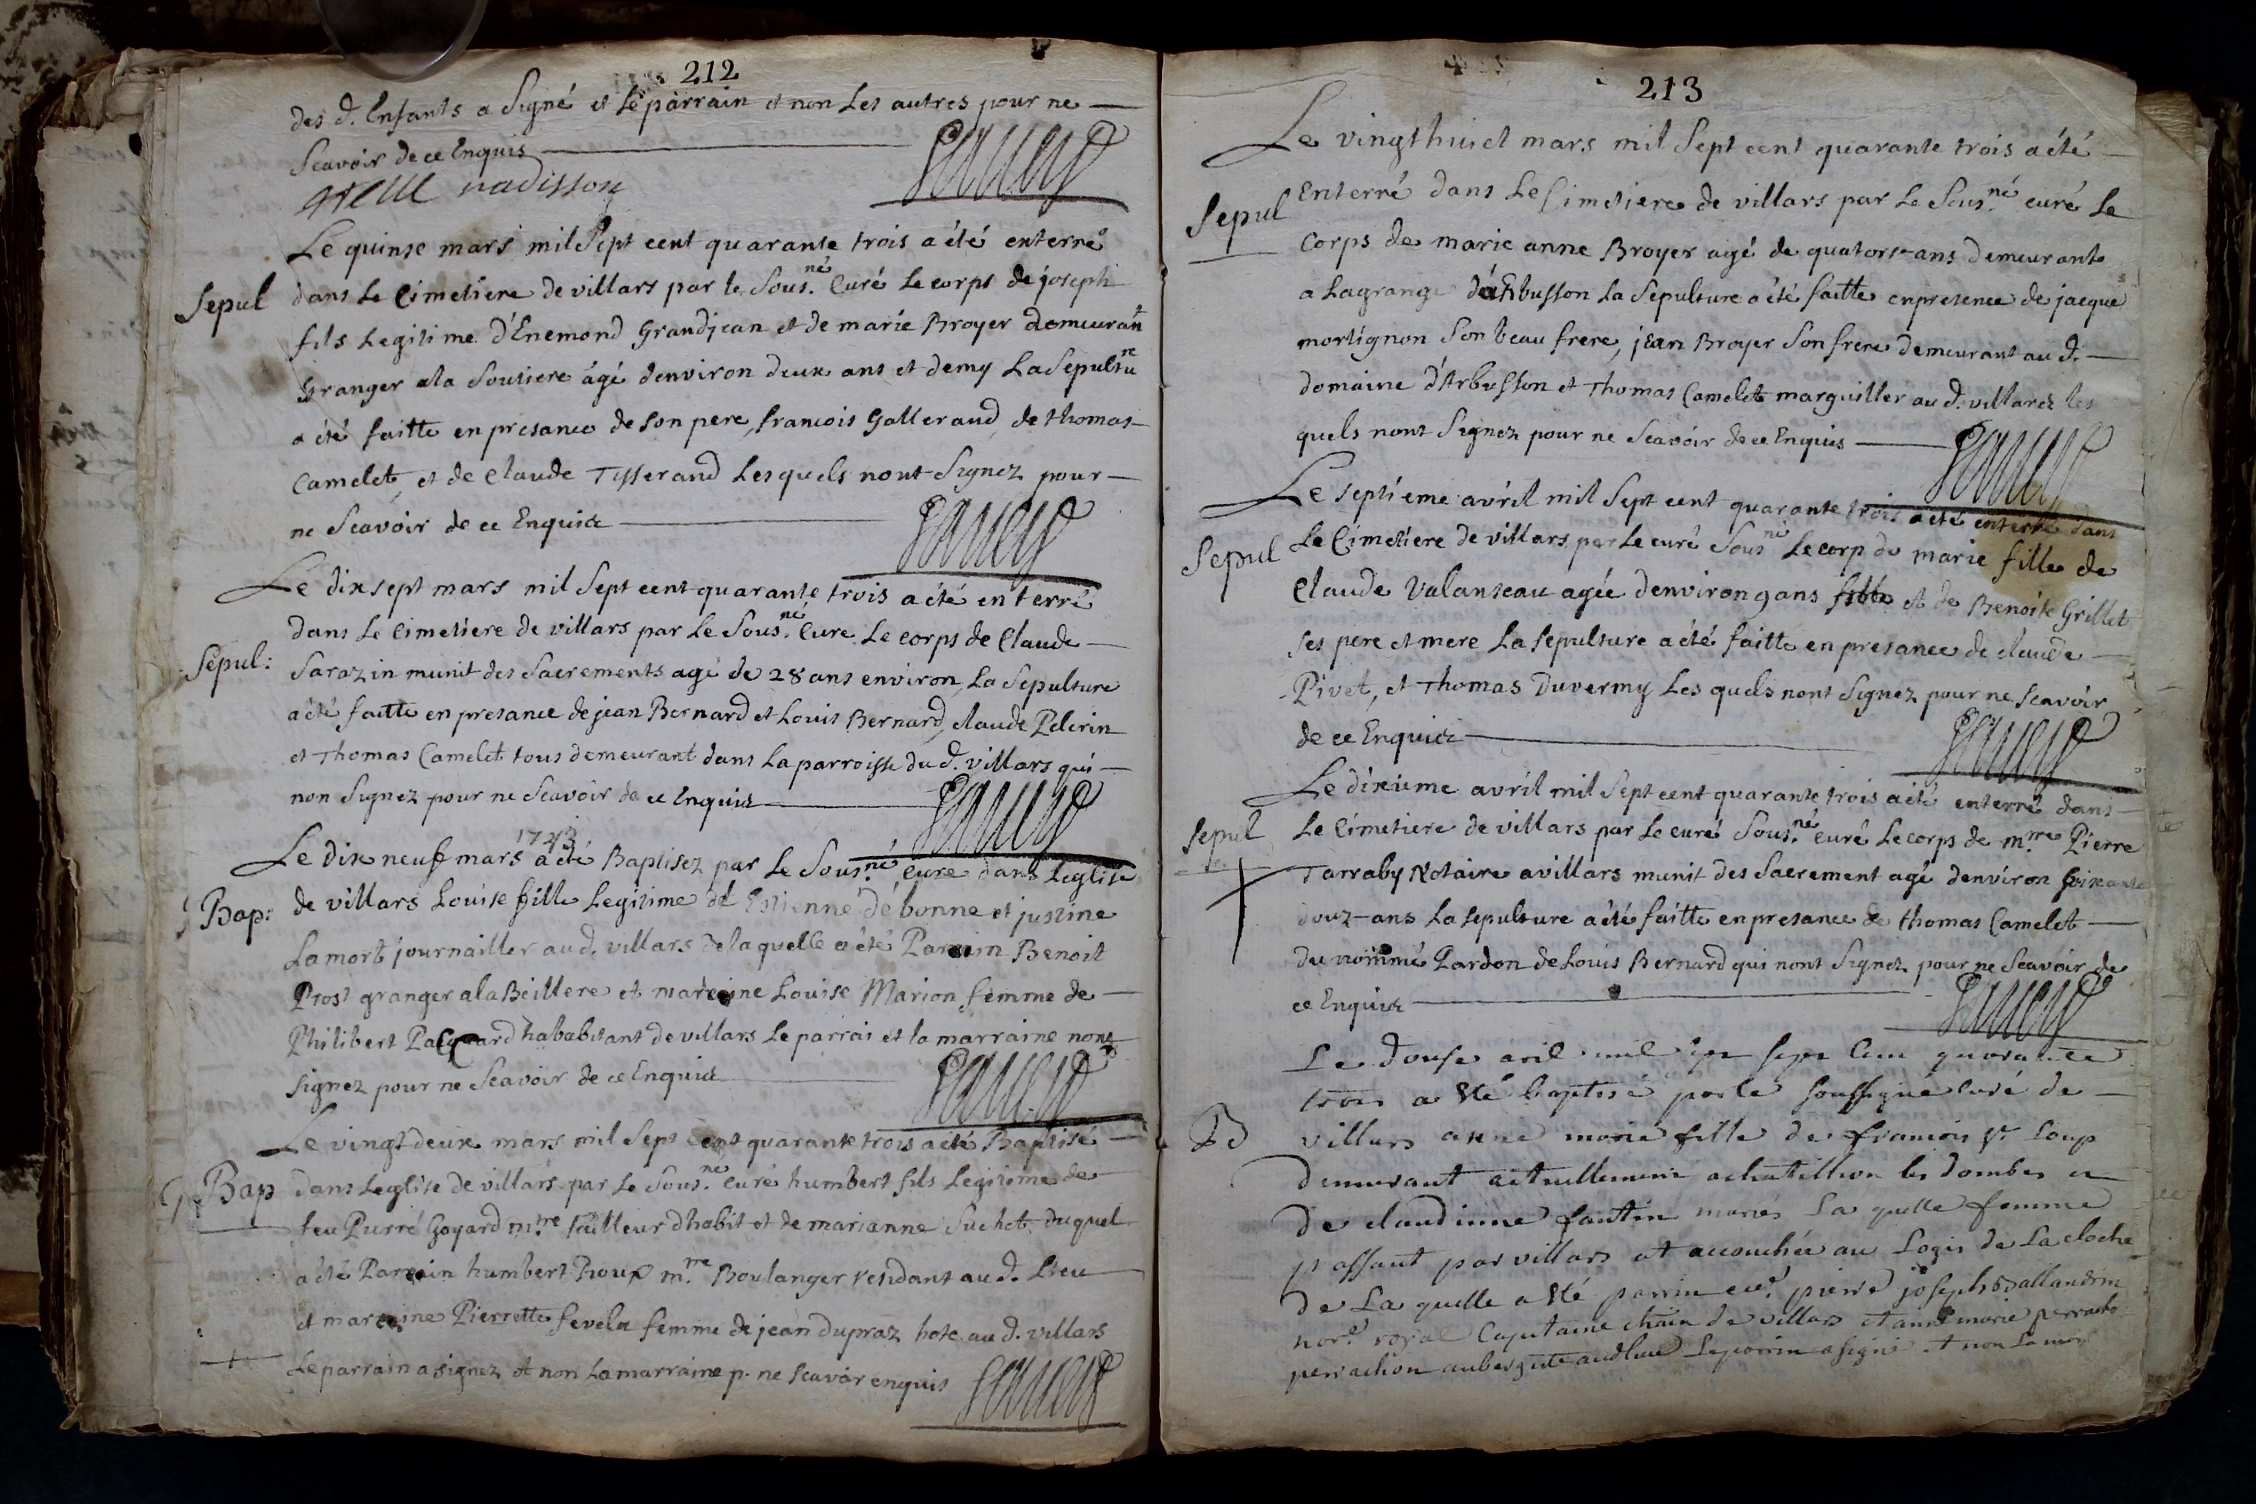 212
des d. Enfants a Signé et le parrain et non Les autres pour ne
Scavoir de ce Enquis
nadisson
Le quinse mars mil Sept cent quarante trois a été enterré
Sepul dans Le Cimetiere de villars par le Sous.né Curé Le corps de joseph
fils Legitime d'Enemond Grandjean et de marie Broyer demeurant
Granger ala Soutiere âgé denviron deux ans et demy La Sepultu.re
a été faitte en presance de Son pere, francois Galleraud, de thomas
Camelet, et de Claude Tisserand Lesquels nont Signez pour
ne Scavoir de ce Enquis
Le dix sept mars mil Sept cent quarante trois a été enterré
dans Le Cimetiere de villars par Le Sous.né Curé Le corps de Claude
Sepul: Sarazin munit des Sacrements agé de 28 ans environ, La Sepulture
a été faitte en presance de jean Bernard et Louis Bernard, claude Pelerin
et Thomas Camelet tous demeurant dans La parroisse du d. villars qui
non Signez pour ne Scavoir de ce Enquis
1743
Le dix neuf mars a été Baptisez par Le Sous.né Curé dans Leglise
Bap: de villars Louise fille Legitime de Estienne de bonne et justine
Lamort journailler au d. villars de laquelle a été Parrain Benoit
Prost granger ala Beillere et marraine Louise Marion femme de
Philibert Pacquard hababitant de villars Le parrai et la marraine nont
signez pour ne Scavoir de ce Enquis
Le vingt deux mars mil Sept cent quarante trois a été Baptisé
Bap dans Leglise de villars par Le Sous.né Curé humbert fils Legitime de
feu Pierre Goyard m.tre tailleur dhabit et de marianne Suchet duquel
a été Parrain humbert Proux m.tre Boulanger residant au d. Lieu
et marraine Pierrette fevela femme de jean dupraz hote au d. villars
Le parrain a signez et non La marraine p. ne scavoir enquis
213
Le vingt huict mars mil Sept cent quarante trois a été
Sepul Enterré dans Le Cimetiere de villars par Le Sous.né curé Le
Corps de marie anne Broyer agé de quatorse ans demeurante
a Lagrange d'arbusson La Sepulture a été faitte en presence de jacques
mortignon Son beau frere, jean Broyer Son frere demeurant au d.
domaine d'Arbusson et Thomas Camelet marguiller au d. villarez les
quels nont Signez pour ne Scavoir de ce Enquis
Le septieme avril mil Sept cent quarante trois a été enterré dans
Sepul Le Cimetiere de villars par Le curé Sous.né Le corp de marie fille de
Claude Valanseau agée denviron 9 ans et de Benoite Grillet
ses pere et mere La Sepulture a été faitte en presance de claude
Pivet, et Thomas Duvermy Les quels nont Signez pour ne Scavoir
de ce Enquis
Le dixieme avril mil Sept cent quarante trois a été enterré dans
Sepul Le Cimetiere de villars par Le curé Sous.né curé Le corps de m.tre Pierre
Tarraby Notaire a villars munit des Sacrement agé denviron soixante
douz ans La sepulture a été faitte en presance de thomas Camelet
du nommé Pardon de Louis Bernard qui nont Signez pour ne Scavoir de
ce Enquis
Le douse avril mil sept Cent quarante
trois a été baptisé par le soussigné curé de
B villars anne marie fille de francois St. Loup
demeurant actuellement a chatillion les dombes et
de claudinne fantin mariés La quelle femme
passant par villars at accouchée au Logis de La cloche
de La quelle a été parrin pierre joseph
royal Capitaine de villars et anne marie
perrachon aubergiste audlieu Le parrin a signé et non La